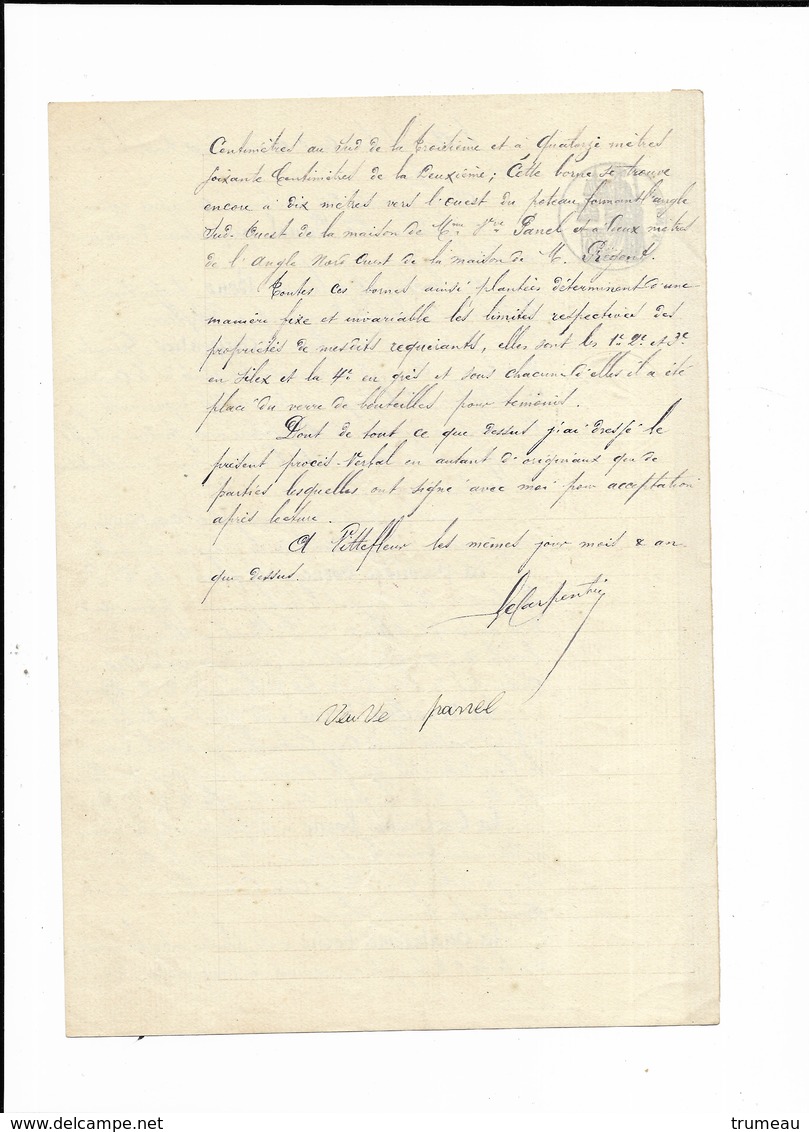 Centimètres au Sud de la Troisième et à Quatorze mètres
soixante Centimètres de la Deuxième; Cette borne se trouve
encore à dix mètres vers l'ouest du poteau formant l'angle
Sud-Ouest de la maison de Mme Vve Panel et à Deux mètres
de l'angle Nord Ouest de la maison de M. Prégent.
Toutes ces bornes ainsi plantées déterminent d'une
manière fixe et invariable les limites respectives des
propriétés de mesdits requérants, elles sont les 1re 2e et 3e
en silex et la 4e en grès et sous chacune d'elles il a été
placé du verre de bouteilles pour temoins.
Dont de tout ce que dessus j'ai dressé le
présent procès-Verbal en autant d'originaux que de
parties lesquelles ont signé avec moi pour acceptation
après lecture.
A Vittefleur les mêmes jour mois & an
que dessus.
LeCarpentier
veuve panel
delcampe.net
trumeau